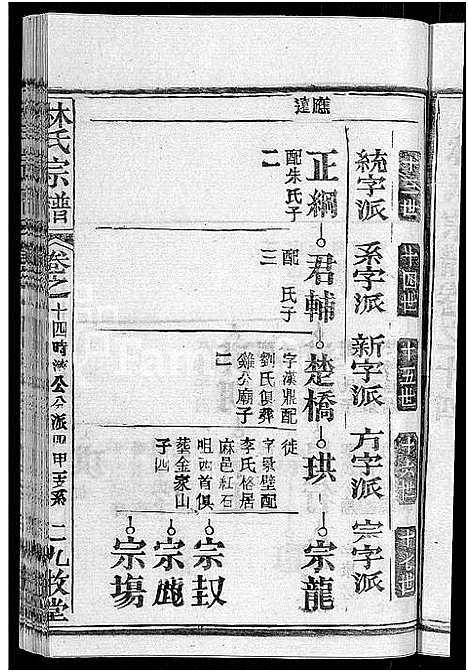 十三世 十四世 十五世 十六世 十七世
統字派 系字派 新字派 方字派 宗字派
應遠
正綱 君輔 楚橋 珙 宗龍
配朱氏子
二
配 氏子
三
字漢鼎配
劉氏俱葬
雞公廟子
二
徒
字景壁配
李氏格居
麻邑紅石
咀西首俱
葬金家山
子四
宗
宗
宗塲
林氏宗譜
卷之一 十四時 公分派四甲支系 二 九牧堂